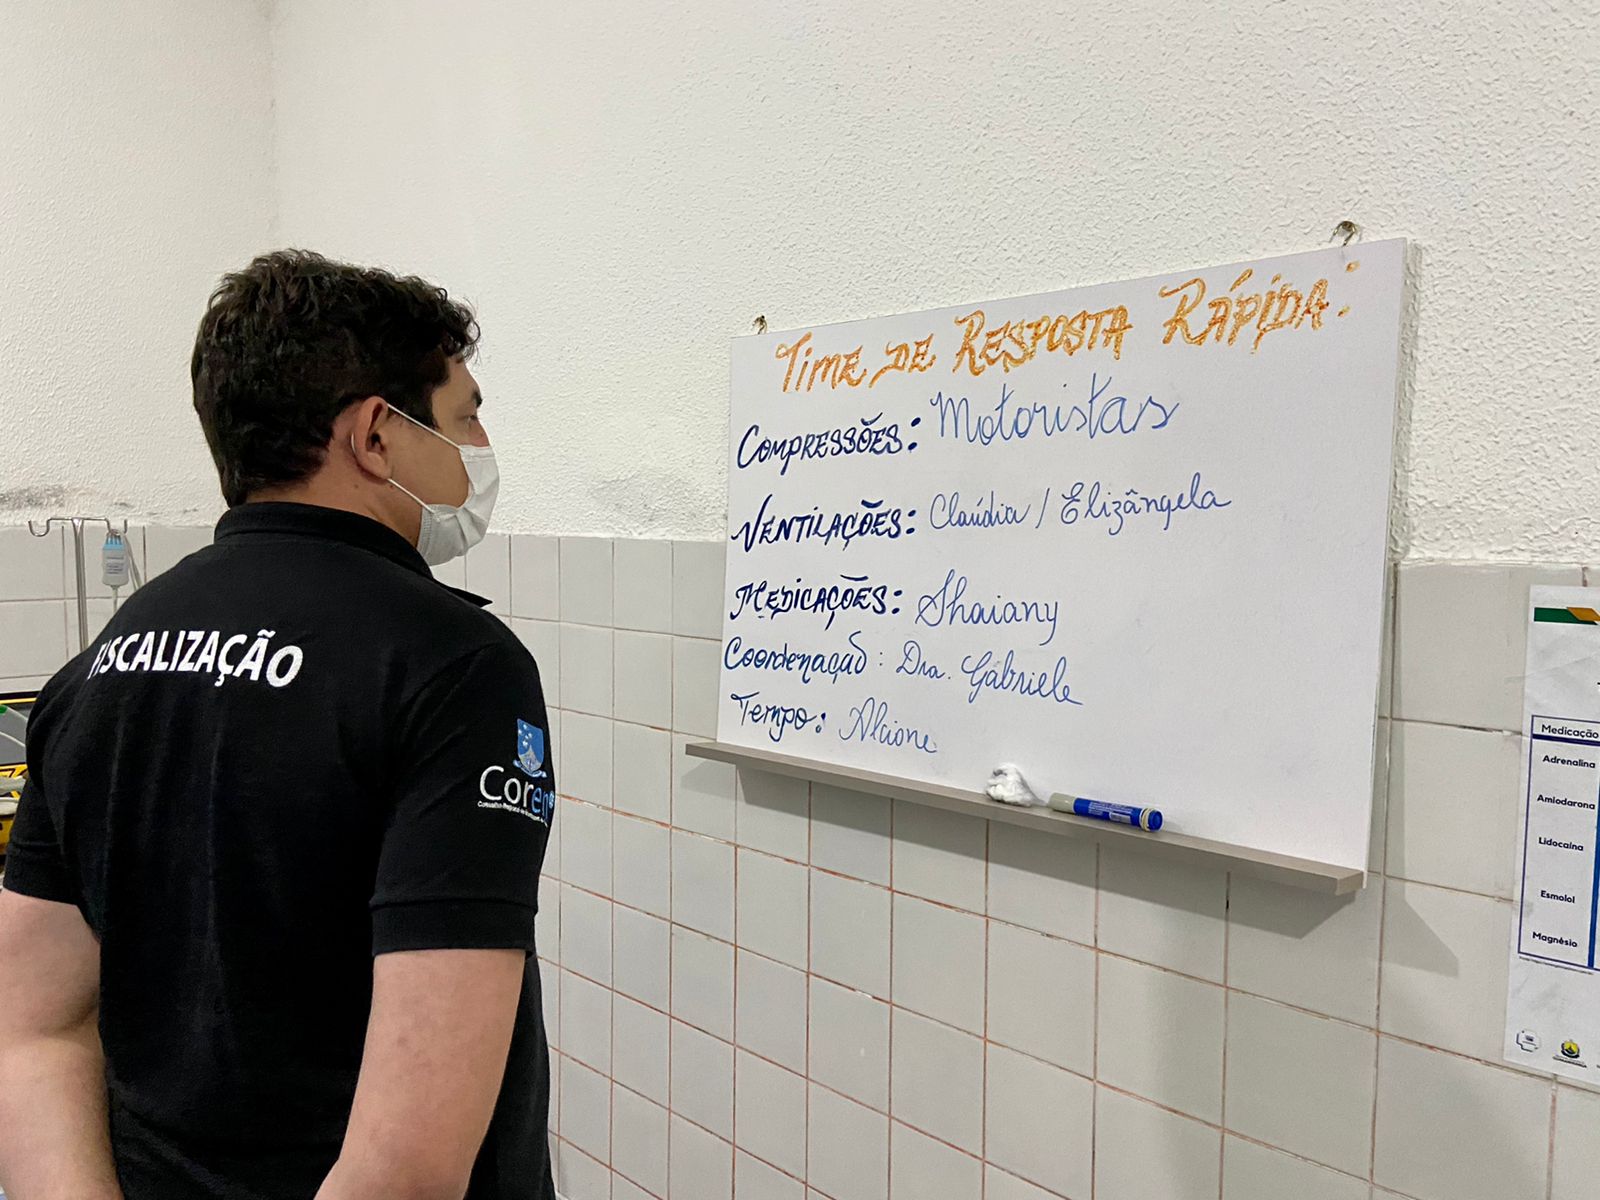 TIME DE RESPOSTA RÁPIDA:
COMPRESSÕES: Motoristas
VENTILAÇÕES: Claúdia / Elizângela
MEDICAÇÕES: Shaiany
Coordenação: Dra. Gabriele
Tempo: Alcione
FISCALIZAÇÃO
Coren
Medicação
Adrenalina
Amiodarona
Lidocaína
Esmolol
Magnésio